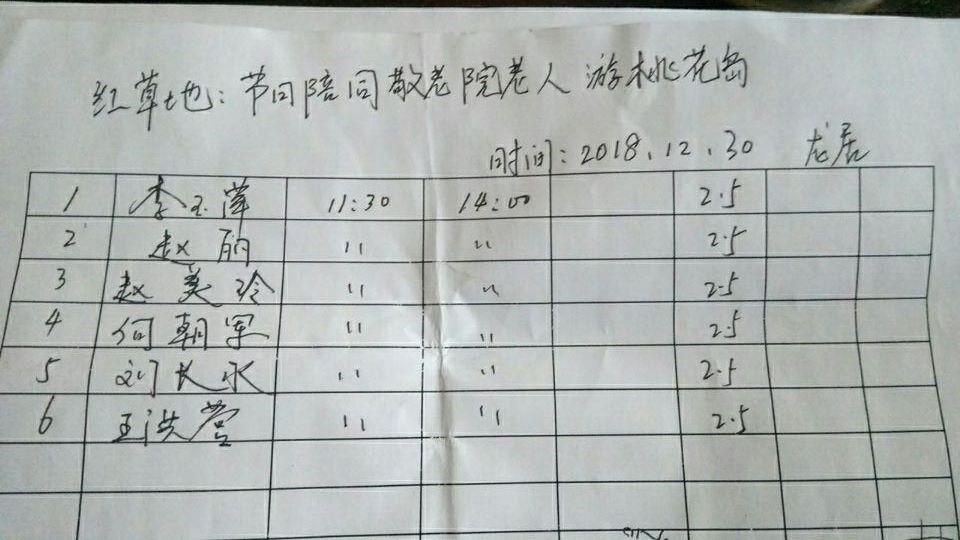 红草地：节日陪同敬老院老人游桃花岛
时间：2018.12.30 龙居
1 李玉萍 11:30 14:00 2.5
2 赵丽 〃 〃 2.5
3 赵美玲 〃 〃 2.5
4 何朝军 〃 〃 2.5
5 刘长永 〃 〃 2.5
6 王洪营 〃 〃 2.5